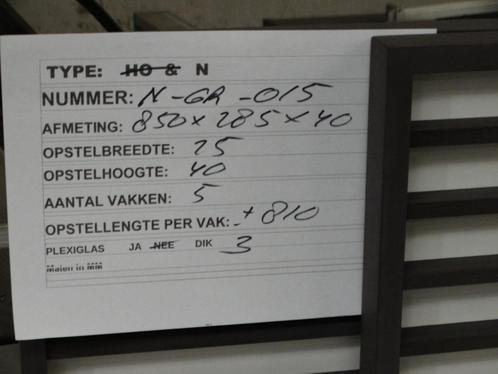 TYPE: HO & N
NUMMER: N-GR-015
AFMETING: 850 x 285 x 40
OPSTELBREEDTE: 25
OPSTELHOOGTE: 40
AANTAL VAKKEN: 5
OPSTELLENGTE PER VAK: ± 810
PLEXIGLAS JA NEE DIK 3
Maten in MM